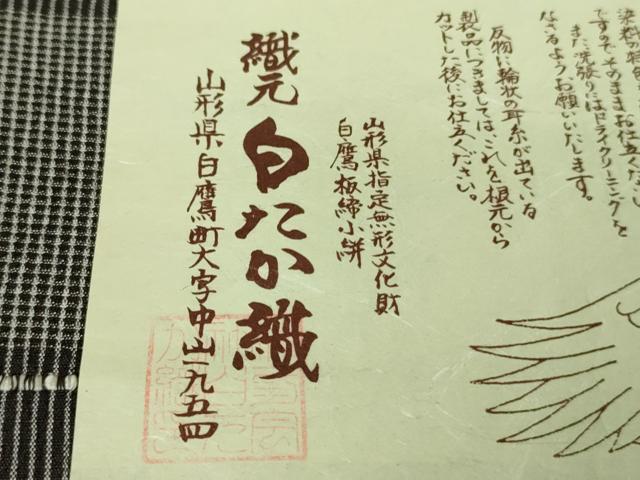 ですのでそのままお仕立てください
また洗張りにはドライクリーニングを
なさるようお願いいたします。
反物に輪状の耳糸が出ている
製品につきましては、これを根元から
カットした後にお仕立ください。
山形県指定無形文化財
白鷹板締小絣
織元
白たか織
山形県白鷹町大字中山一九五四